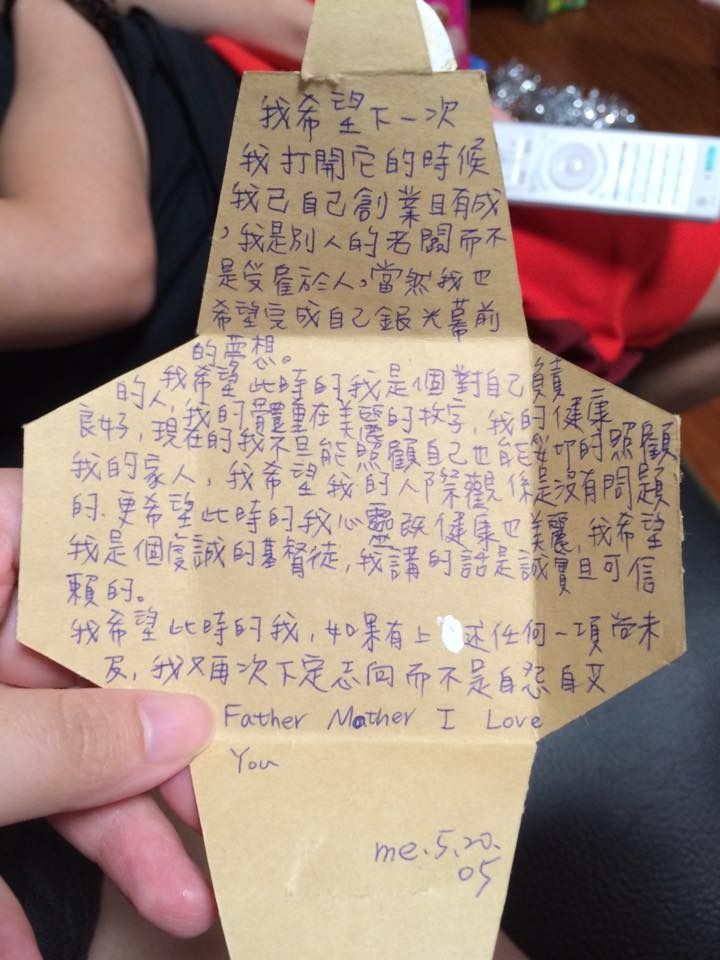 我希望下一次
我打開它的時候
我已自己創業且有成
，我是別人的老闆而不
是受雇於人。當然我也
希望完成自己銀光幕前
的夢想。
我希望此時的我是個對自己負責
的人，我的體重在美麗的数字，我的健康
良好，現在的我不旦能照顧自己也能的照顧
我的家人，我希望我的人際觀係是沒有問題
的.更希望此時的我心靈既健康也美麗，我希望
我是個虔誠的基督徒，我講的話是誠實且可信
賴的。
我希望此時的我，如果有上述任何一項尚未
及，我又再次下定志向而不是自怨自艾
Father Mother I Love
You
me.5.20.
05